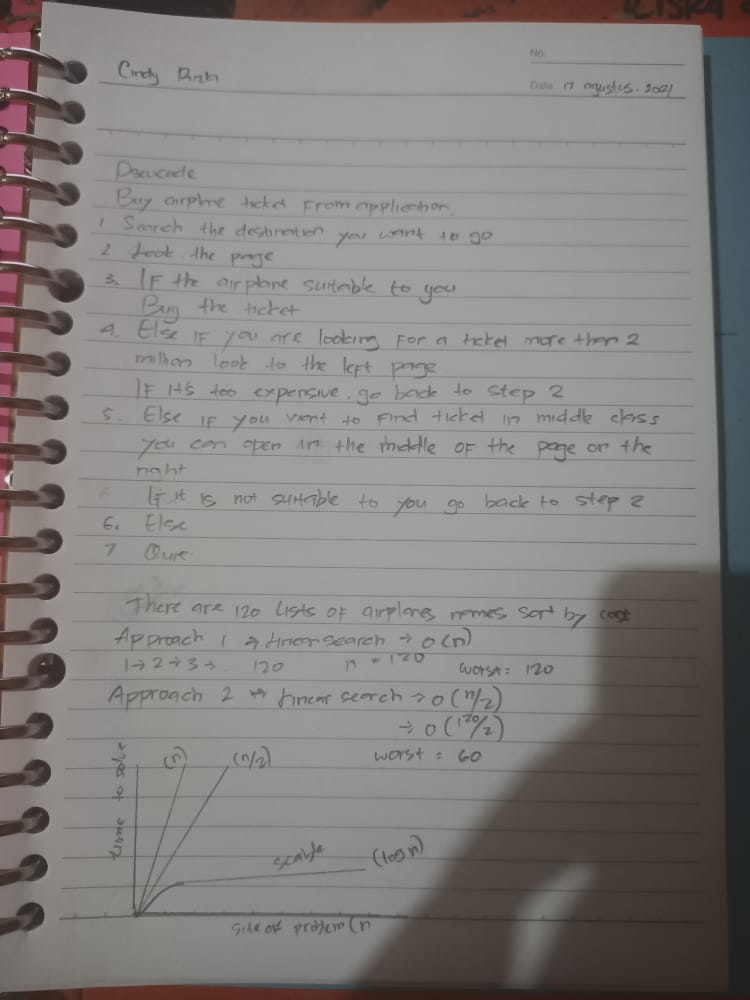 No.
Cindy
Date 17 agustus. 2021
Pseucode
Buy airplane ticket From application.
1 Search the destination you want to go
2 Look the page
3. IF the airplane suitable to you
Buy the ticket
4. Else IF you are looking For a ticket more than 2
million look to the left page
IF it's too expensive, go back to step 2
5. Else IF you want to Find ticket in middle class
you can open in the middle OF the page or the
right
IF it is not suitable to you go back to step 2
6. Else
7
There are 120 Lists OF airplanes names sort by cost
Approach 1 → Linear search → O(n)
1 → 2 → 3 → .. 120 n = 120 worst = 120
Approach 2 → Linear search → O(n/2)
→ O(120/2)
worst = 60
(n) (n/2)
time to solve
(log n)
Size OF problem (n